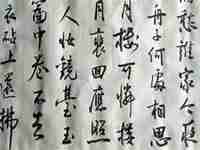 愁誰家今
舟子何處相思
月樓可憐樓
月裴回應照
人妝鏡臺玉
簾中卷不去
衣砧上還拂